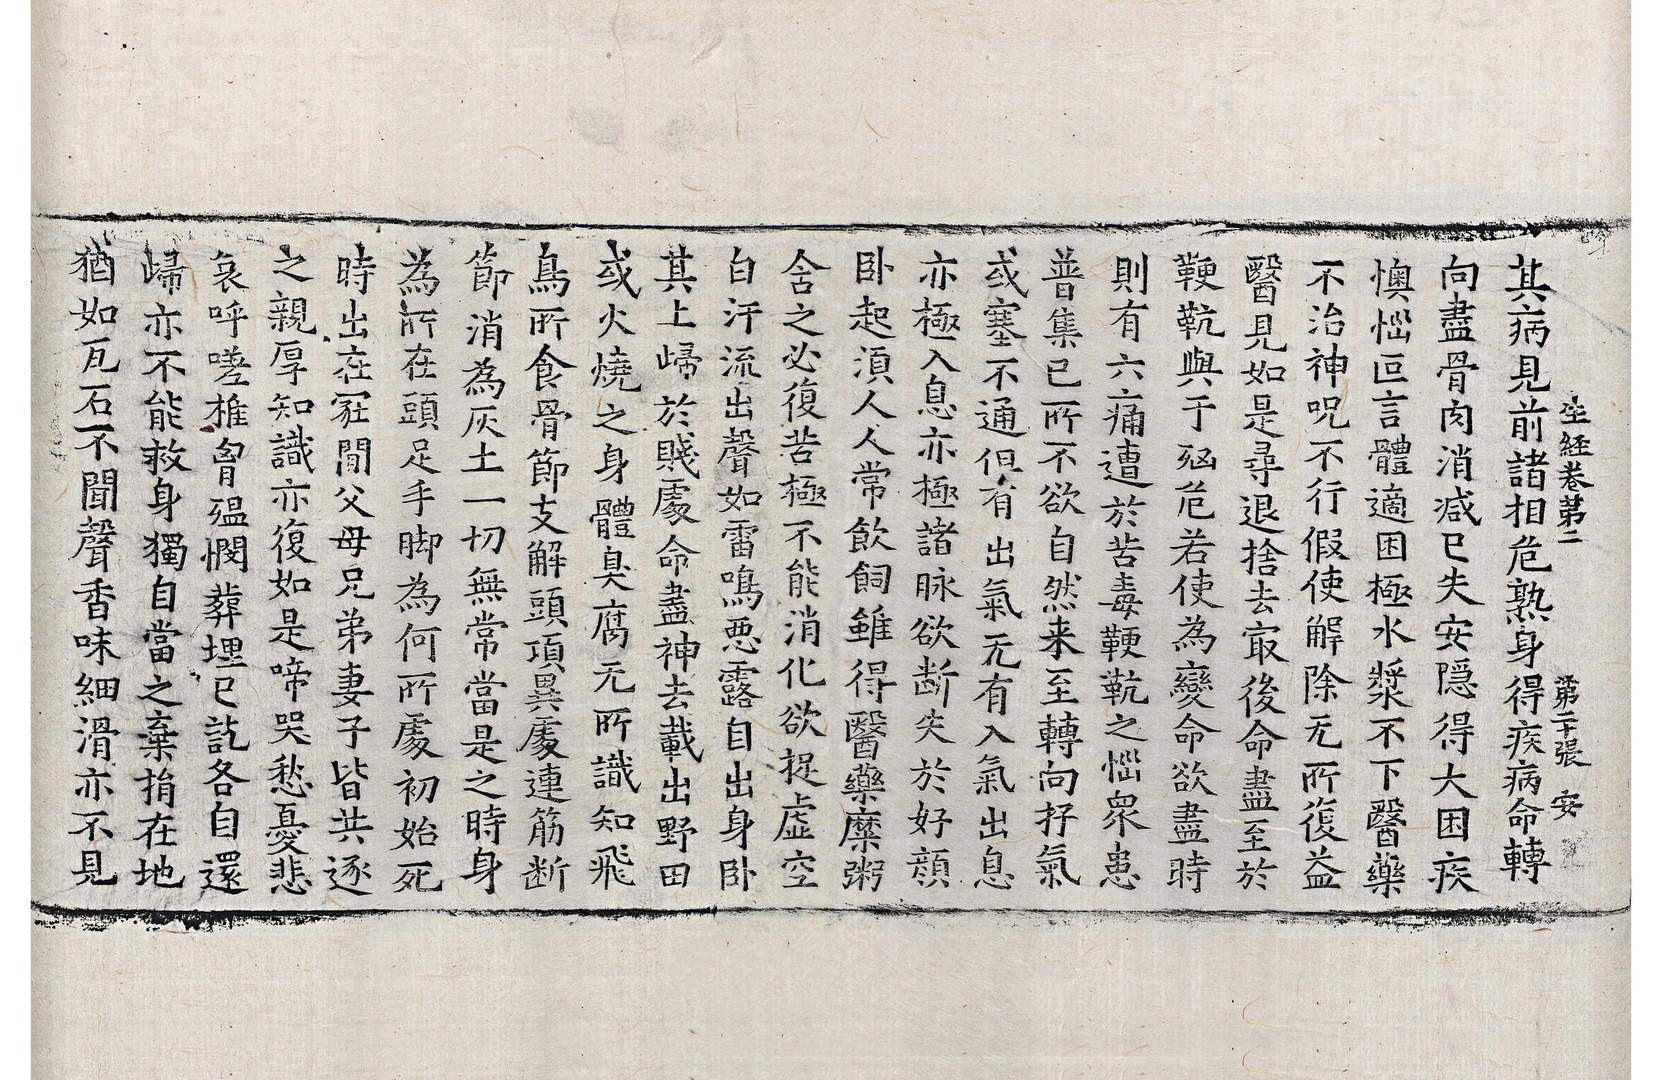 生經卷第二 第二十張 安
其病見前諸相危熟身得疾病命轉
向盡骨肉消減已失安隱得大困疾
懊惱叵言體適困極水漿不下醫藥
不治神呪不行假使解除无所復益
醫見如是尋退捨去㝡後命盡至於
鞕䩕與于㐫危若使為變命欲盡時
則有六痛遭於苦毒鞕䩕之惱衆患
普集已所不欲自然来至轉向抒氣
或塞不通但有出氣无有入氣出息
亦極入息亦極諸脉欲断失於好顔
卧起湏人人常飲飼雖得醫藥糜粥
含之必復苦極不能消化欲捉虛空
白汗流出聲如雷鳴惡露自出身卧
其上歸於賤處命盡神去載出野田
或火燒之身體臭腐无所識知飛
鳥所食骨節支解頭項異處連筋断
節消為灰土一切無常當是之時身
為所在頭足手脚為何所處初始死
時出在冢間父母兄弟妻子皆共逐
之親厚知識亦復如是啼哭愁憂悲
哀呼嗟椎胷殟憫葬埋已訖各自還
歸亦不能救身獨自當之棄捐在地
猶如瓦石不聞聲香味細滑亦不見